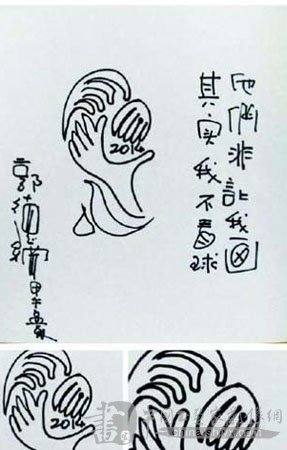 他們非让我画
其实我不看球
2014
郭德纲甲午
2014
2014